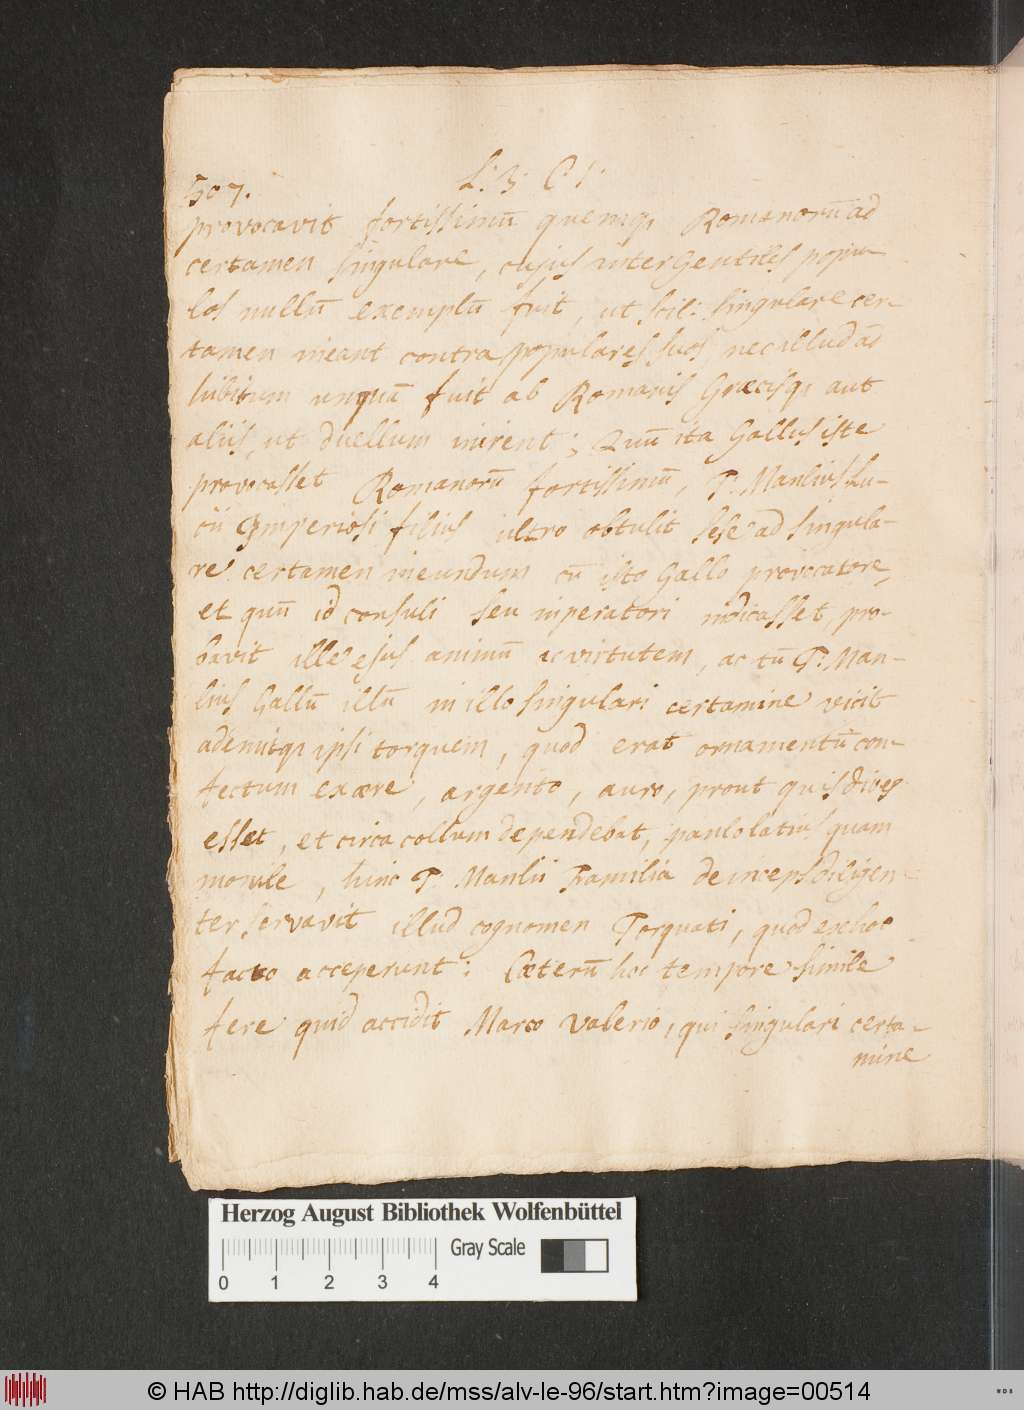 507.
L: 3. C. 1.
provocavit fortissimū quemq; Romanorū ad
certamen singulare, cujus inter Gentiles popu-
los nullū exemplū fuit, ut scil: singulare cer-
tamen ineant contra populares suos nec illud as
lubitum unquā fuit ab Romanis Græcisq; aut
aliis, ut duellum inirent; Quū ita Gallus iste
provocasset Romanorū fortissimū, T. Manlius Lu-
cii Imperiosi filius ultro obtulit sese ad singula-
re certamen ineundum cū isto Gallo provocatore,
et quū id consuli seu inperatori indicasset, pro-
bavit ille ejus animū ac virtutem, ac tū T. Man-
lius Gallū illū in illo singulari certamine vicit
ademitq; ipsi torquem, quod erat ornamentū con-
fectum ex ære, argento, auro, prout quis dives
esset, et circa collum dependebat, paulo latius quam
monile, hinc T. Manlii Familia deinceps diligen-
ter servavit illud cognomen Torquati, quod ex hoc
facto acceperunt: Cæterū hoc tempore simile
fere quid accidit Marco Valerio, qui singulari certa-
mine
Herzog August Bibliothek Wolfenbüttel
Gray Scale
0 1 2 3 4
© HAB http://diglib.hab.de/mss/alv-le-96/start.htm?image=00514